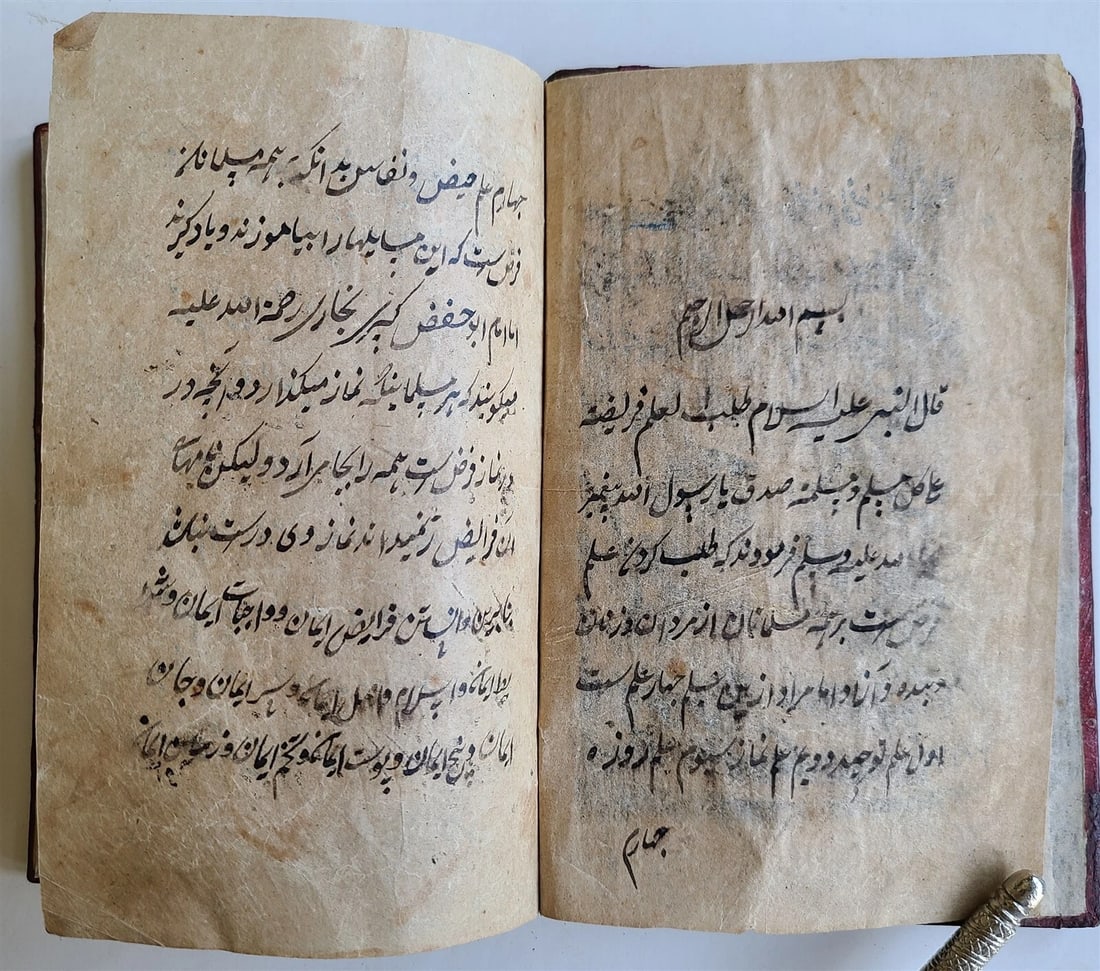 بسم الله الرحمن الرحیم
قال النبی علیه السلام طلب العلم فریضة
علی کل مسلم و مسلمة صدق یا رسول الله پیغمبر
الله علیه وسلم فرمودند که طلب کردن علم
فرض است بر همه مسلمانان از مردان و زنان
و بنده و آزاد و اما مراد ازین علم چهار علم ست
اول علم توحید دویم علم نماز سیوم علم روزه
چهارم
چهارم علم حیض و نفاس بدانکه بهمه مسلمانان
فرض ست که این مسایلها را بیاموزند و یاد گیرند
اما امام ابو حفض کبیری بخاری رحمة الله علیه
میکویند که هر مسلمانیکه نماز میکذارد و آنچه در
در نماز فرض ست همه را بجا می آرد و لیکن نامهای
آن فرایض را نمیداند نماز وی درست نباشد
بنابرین دانستن فرایض ایمان و واجبات ایمان و شر
یط ایمان و اسلام و اصل ایمان و سر ایمان و جان
ایمان و بیخ ایمان و پوست ایمان و تخم ایمان و زمین ایمان